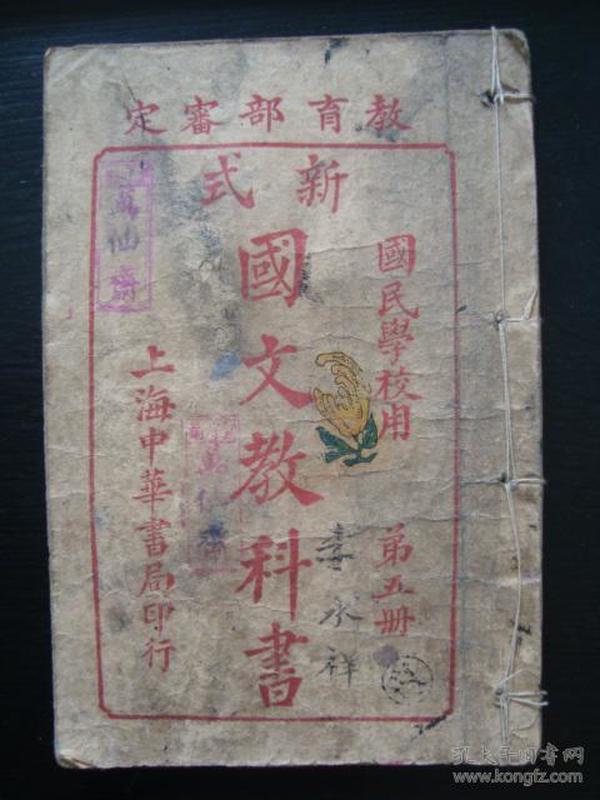 教育部審定
新式
國文教科書
國民學校用
第五冊
上海中華書局印行
萬仙齋
萬仙齋
李永祥
孔夫子旧书网
www.kongfz.com